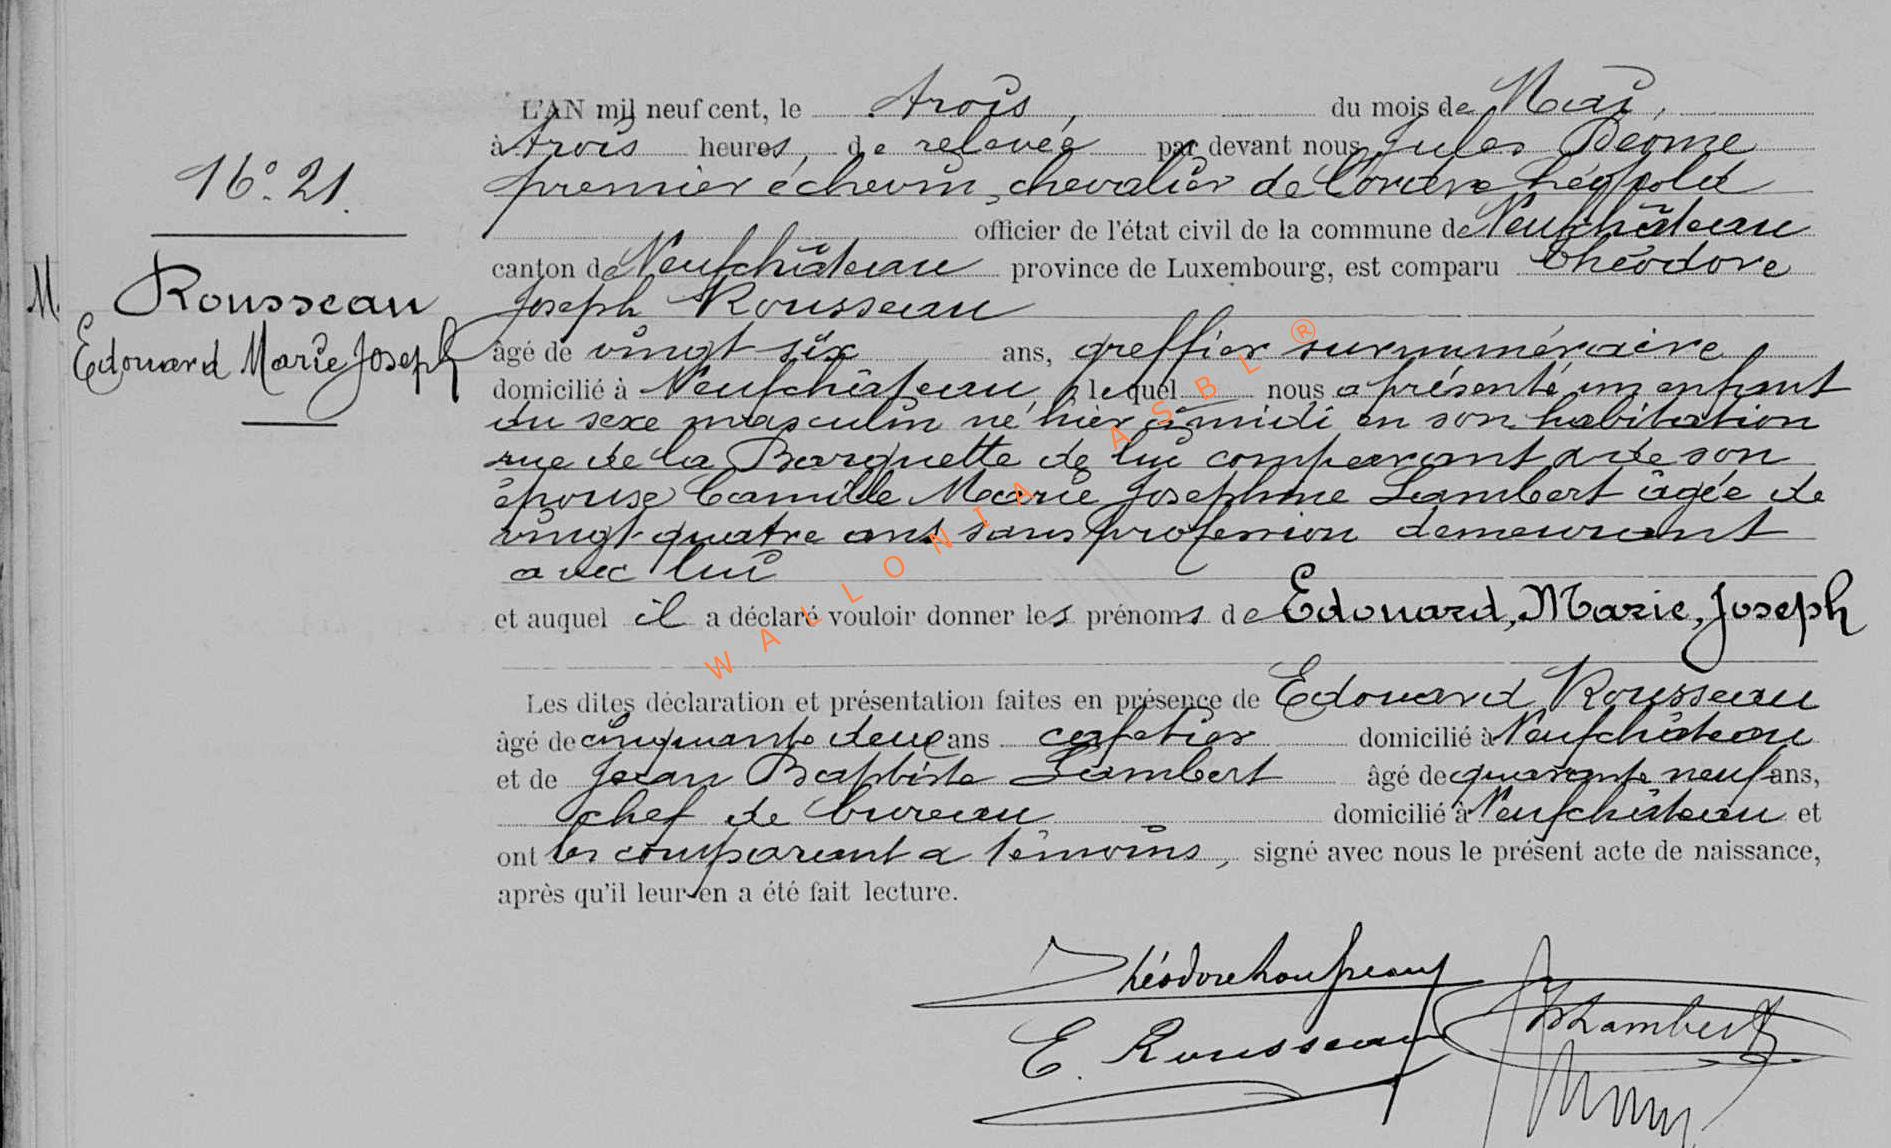 N°. 21.
M.
Rousseau
Edouard Marie Joseph
L'AN mil neuf cent, le trois, du mois de Mai,
à trois heures, de relevée par devant nous Jules
premier échevin, chevalier de l'ordre Léopold
officier de l'état civil de la commune de Neufchâteau
canton de Neufchâteau province de Luxembourg, est comparu Théodore
Joseph Rousseau
âgé de vingt six ans, greffier surnuméraire
domicilié à Neufchâteau, lequel nous a présenté un enfant
du sexe masculin né hier à midi en son habitation
rue de la Barquette de lui comparant et de son
épouse Camille Marie Josephine Lambert âgée de
vingt-quatre ans sans profession demeurant
avec lui
et auquel il a déclaré vouloir donner les prénoms de Edouard, Marie, Joseph
Les dites déclaration et présentation faites en présence de Edouard Rousseau
âgé de cinquante deux ans cafetier domicilié à Neufchâteau
et de Jean Baptiste Lambert âgé de quarante neuf ans,
chef de bureau domicilié à Neufchâteau et
ont les comparant & témoins, signé avec nous le présent acte de naissance,
après qu'il leur en a été fait lecture.
Théodore Rousseau
E. Rousseau
JBLambert
WALLONIA ASBL ®